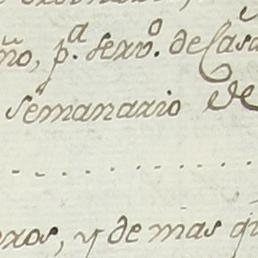 ño, pª. servº. de Casa
semanario de
xos, y de mas q